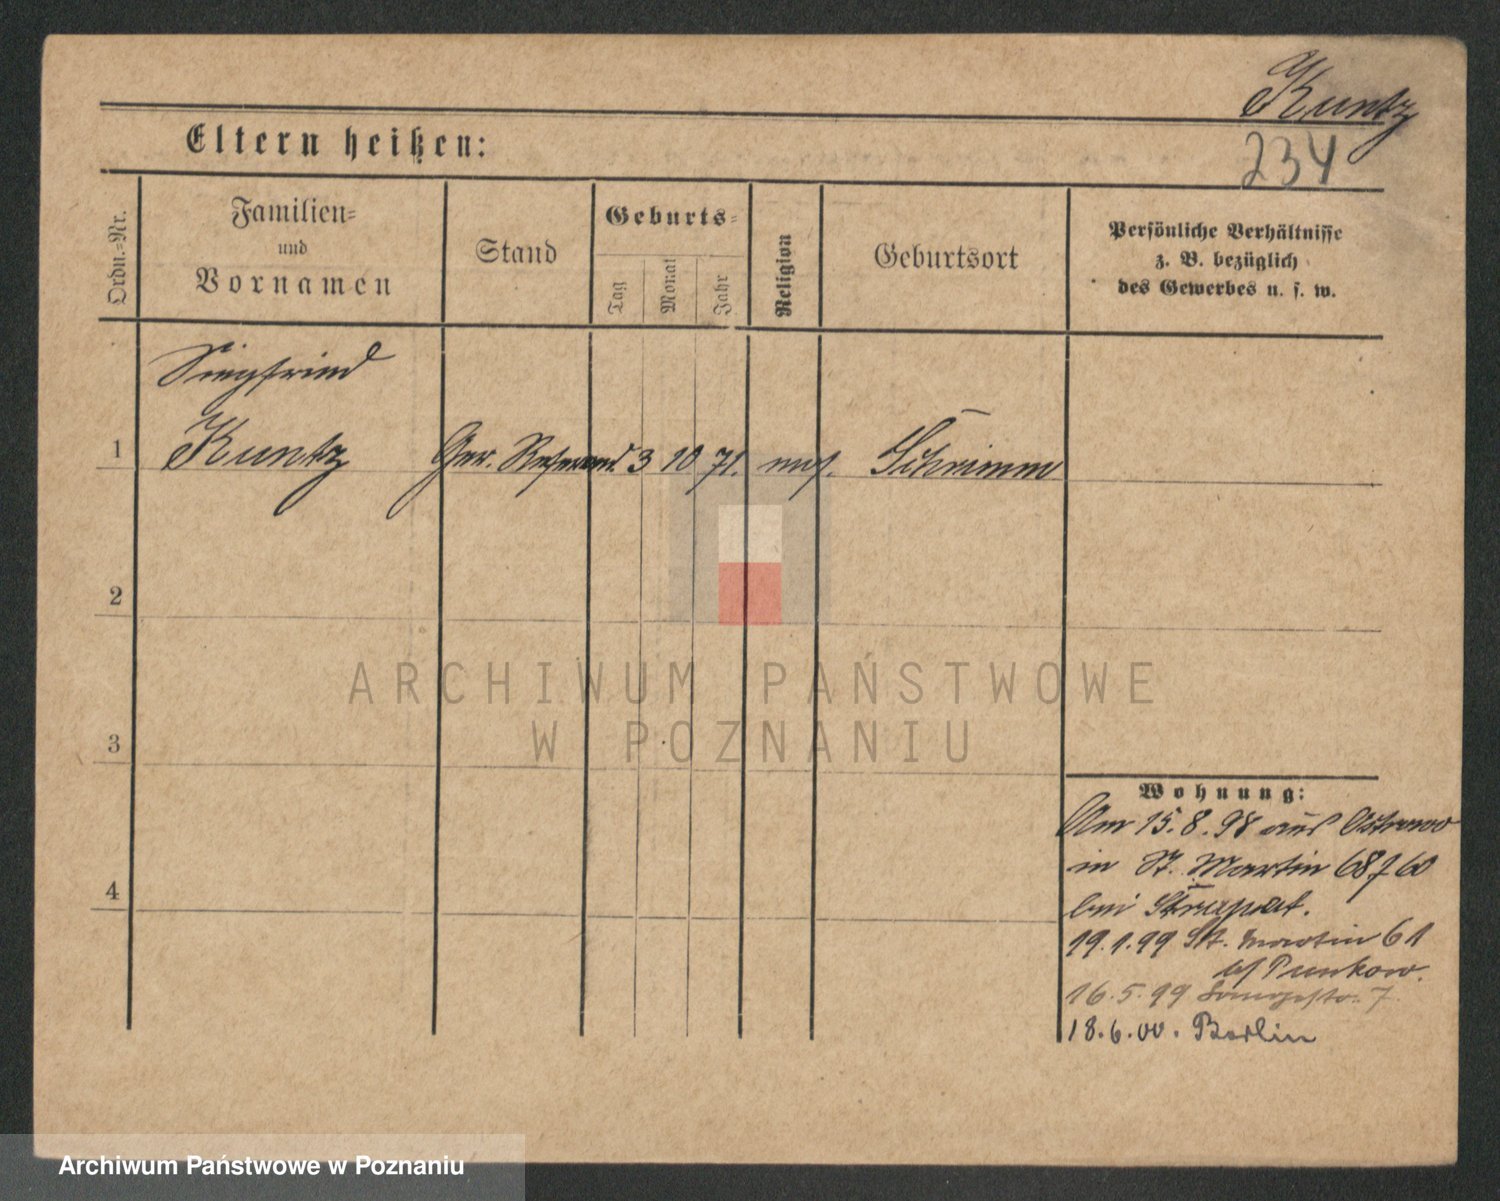 Kuntz
234
Eltern heißen:
Ordn.=Nr.
Familien=
und
Vornamen
Stand
Geburts=
Tag
Monat
Jahr
Religion
Geburtsort
Persönliche Verhältnisse
z. B. bezüglich
des Gewerbes u. s. w.
Siegfried
1 Kuntz Ger. Referend. 3 10 71. mos. Schrimm
2
ARCHIWUM PAŃSTWOWE
W POZNANIU
3
Wohnung:
Am 15.8.98 aus Ostrowo
in St. Martin
4
bei
19.1.99 St. Martin 61
16.5.99 7
18.6.00. Berlin
Archiwum Państwowe w Poznaniu